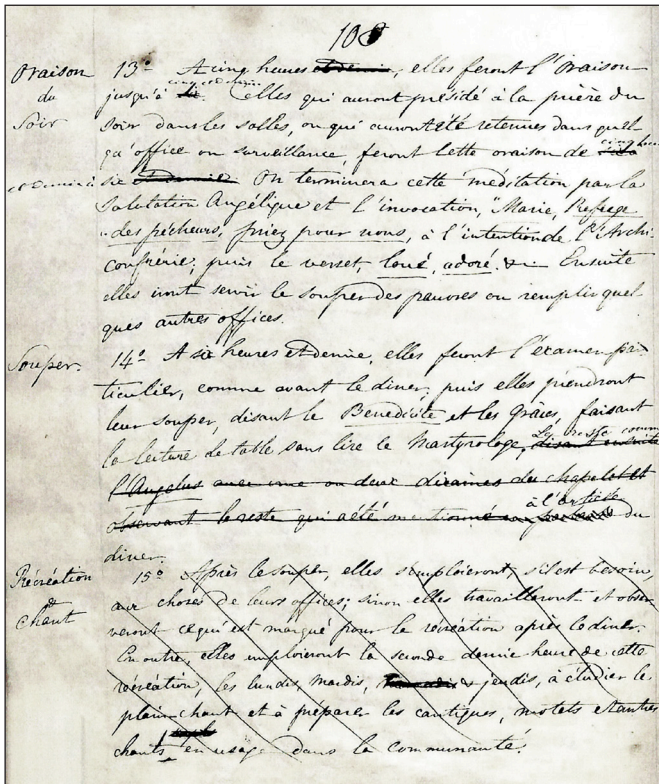 108
Oraison
du
Soir
13º A cinq heures et demie, elles feront l'Oraison
cinq et demie
jusqu'à six. Celles qui auront présidé à la prière du
soir dans les salles, ou qui auront été retenues dans quel-
qu'office ou surveillance, feront cette oraison de
cinq heures
et demie à
six et demie. On terminera cette méditation par la
Salutation Angélique et l'invocation, "Marie, Refuge
"des pécheurs, priez pour nous, à l'intention de l'Archi-
confrérie; puis le verset, loué, adoré, &. Ensuite
elles iront servir le souper des pauvres ou remplir quel-
ques autres offices.
Souper.
14º A six heures et demie, elles feront l'examen par-
ticulier, comme avant le diner; puis elles prendront
leur souper, disant le Benedicite et les Grâces, faisant
la lecture de table sans lire le Martyrologe, disant ensuite
Le reste comme
l'Angelus avec une ou deux dizaines du chapelet et
observant le reste qui a été mentionné du
à l'article
diner.
Récréation
&
Chant
15º Après le souper, elles s'emploieront, s'il est besoin,
aux choses de leurs offices; sinon elles travailleront et obser-
veront ce qui est marqué pour la récréation après le diner.
En outre, elles emploieront la seconde demie heure de cette
récréation, les lundis, mardis, jeudis, à étudier le
plain-chant et à préparer les cantiques, motets et autres
chants en usage dans la communauté.